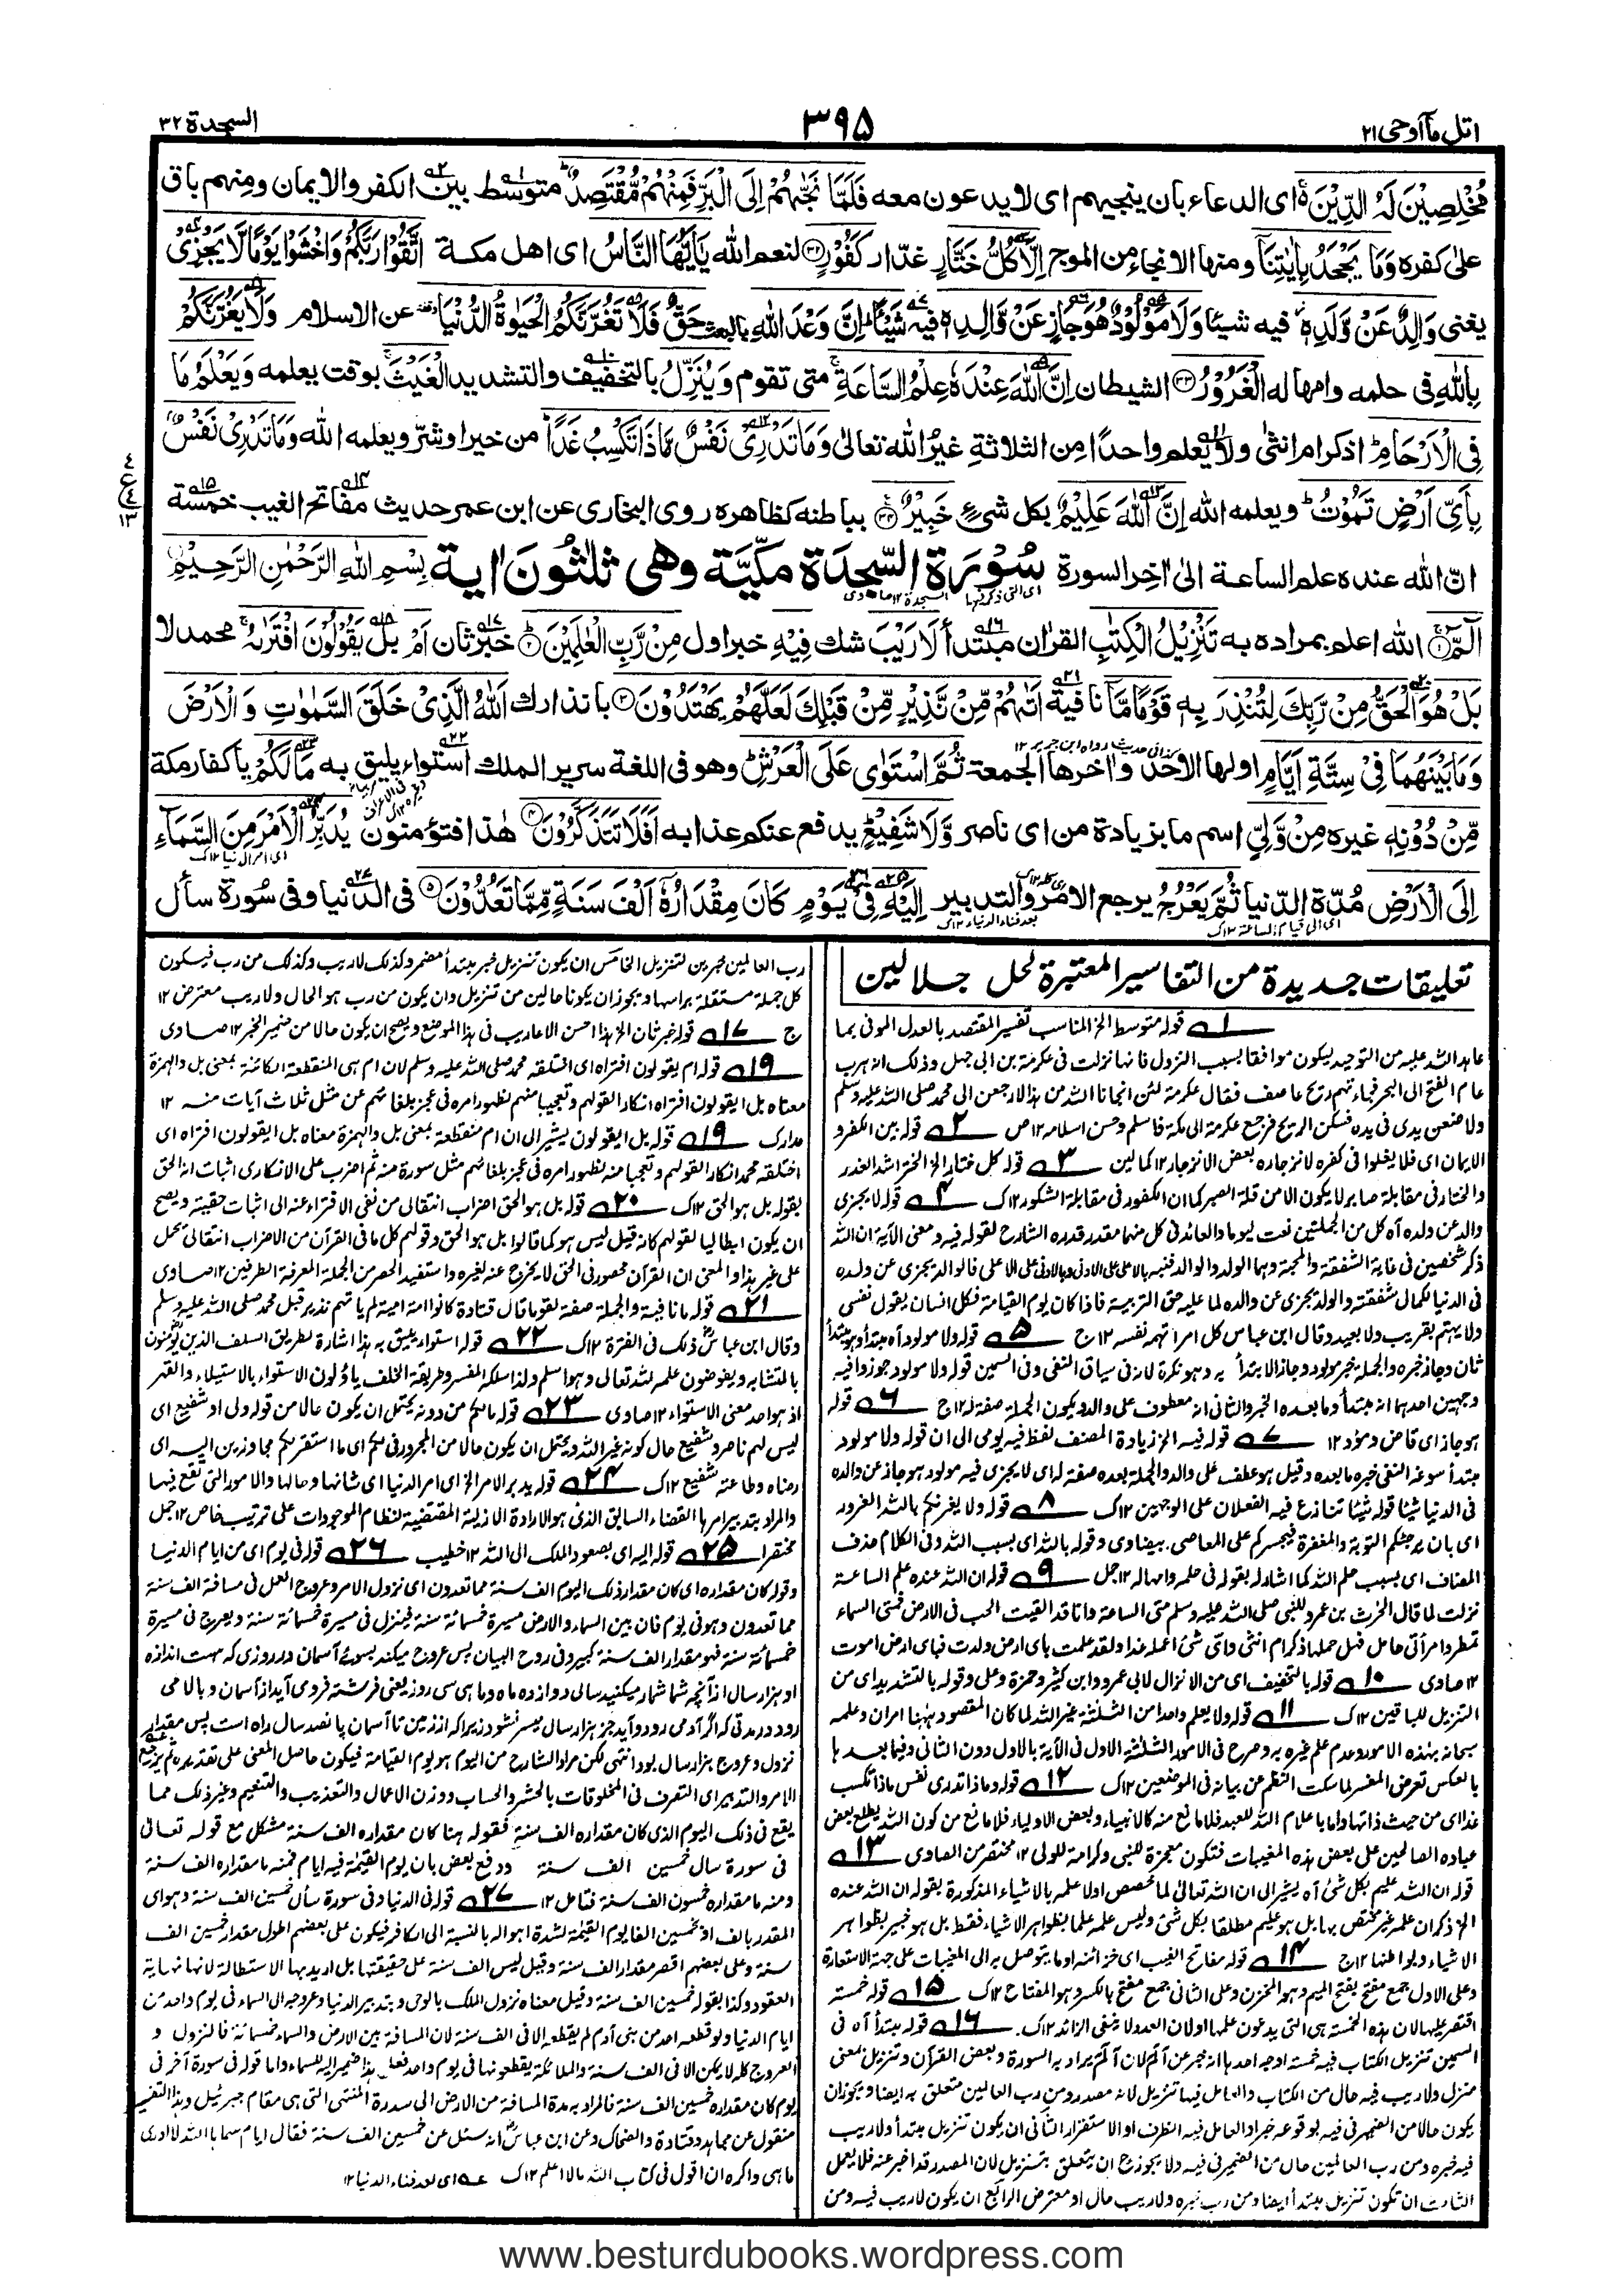 اتل ماۤاوحی۲۱
۳۹۵
السجدة ۳۲
مُخْلِصِيْنَ لَهُ الدِّيْنَ ۚ اى الدعاء بان ينجيهم اى لا يدعون معه فَلَمَّا نَجّٰىهُمْ اِلَى الْبَرِّ فَمِنْهُمْ مُّقْتَصِدٌ ؕ متوسط بين الكفر والايمان ومنهم باق
على كفره وَمَا يَجْحَدُ بِاٰيٰتِنَاۤ ومنها الانجاء من الموج اِلَّا كُلُّ خَتَّارٍ غدّار كَفُوْرٍ ۝۳۲ لنعم الله يٰۤاَيُّهَا النَّاسُ اى اهل مكة اتَّقُوْا رَبَّكُمْ وَاخْشَوْا يَوْمًا لَّا يَجْزِىْ
يغنى وَالِدٌ عَنْ وَّلَدِهٖ فيه شيئا وَلَا مَوْلُوْدٌ هُوَ جَازٍ عَنْ وَّالِدِهٖ فيه شَيْـًٔا ؕ اِنَّ وَعْدَ اللّٰهِ بالبعث حَقٌّ فَلَا تَغُرَّنَّكُمُ الْحَيٰوةُ الدُّنْيَا عن الاسلام وَلَا يَغُرَّنَّكُمْ
بِاللّٰهِ فى حلمه وامهاله الْغَرُوْرُ ۝۳۳ الشيطان اِنَّ اللّٰهَ عِنْدَهٗ عِلْمُ السَّاعَةِ ۚ متى تقوم وَيُنَزِّلُ بالتخفيف والتشديد الْغَيْثَ ۚ بوقت يعلمه وَيَعْلَمُ مَا
فِى الْاَرْحَامِ ؕ اذكر ام انثى ولا يعلم واحدًا من الثلاثة غيرُ الله تعالى وَمَا تَدْرِىْ نَفْسٌ مَّاذَا تَكْسِبُ غَدًا ؕ من خير او شرّ ويعلمه الله وَمَا تَدْرِىْ نَفْسٌۢ
بِاَىِّ اَرْضٍ تَمُوْتُ ؕ ويعلمه الله اِنَّ اللّٰهَ عَلِيْمٌ بكل شىء خَبِيْرٌ ۝۳۴ بباطنه كظاهره روى البخارى عن ابن عمر حديث مفاتح الغيب خمسة
انّ الله عنده علم الساعة الى اٰخر السورة سُوْرَة السَّجدَة مَكيَّة وهى ثلٰثون اٰية بِسْمِ اللّٰهِ الرَّحْمٰنِ الرَّحِيْمِ
الٓمّٓ ۝۱ الله اعلم بمراده به تَنْزِيْلُ الْكِتٰبِ القراٰن مبتدأ لَا رَيْبَ شك فِيْهِ خبر اول مِنْ رَّبِّ الْعٰلَمِيْنَ ۝۲ خبر ثان اَمْ بل يَقُوْلُوْنَ افْتَرٰىهُ ۚ محمد لا
بَلْ هُوَ الْحَقُّ مِنْ رَّبِّكَ لِتُنْذِرَ به قَوْمًا مَّاۤ نافية اَتٰىهُمْ مِّنْ نَّذِيْرٍ مِّنْ قَبْلِكَ لَعَلَّهُمْ يَهْتَدُوْنَ ۝۳ بانذارك اَللّٰهُ الَّذِىْ خَلَقَ السَّمٰوٰتِ وَالْاَرْضَ
وَمَا بَيْنَهُمَا فِىْ سِتَّةِ اَيَّامٍ اولها الاحد واٰخرها الجمعة ثُمَّ اسْتَوٰى عَلَى الْعَرْشِ ؕ وهو فى اللغة سرير الملك استواء يليق به مَا لَكُمْ يا كفار مكة
مِّنْ دُوْنِهٖ غيره مِنْ وَّلِىٍّ اسم ما بزيادة من اى ناصر وَّلَا شَفِيْعٍ ؕ يدفع عنكم عذابه اَفَلَا تَتَذَكَّرُوْنَ ۝۴ هٰذا فتؤمنون يُدَبِّرُ الْاَمْرَ مِنَ السَّمَآءِ
اِلَى الْاَرْضِ مُدّة الدّنيا ثُمَّ يَعْرُجُ يرجع الامر والتدبير اِلَيْهِ فِىْ يَوْمٍ كَانَ مِقْدَارُهٗۤ اَلْفَ سَنَةٍ مِّمَّا تَعُدُّوْنَ ۝۵ فى الدّنيا وفى سُورة سأل
تعليقات جديدة من التفاسير المعتبرة لحل جلالين
۱ قوله متوسط الخ المناسب تفسير المقتصد بالعدل الموفى بما
عاهد الله عليه من التوحيد ليكون موافقا لسبب النزول فانها نزلت فى عكرمة بن ابى جهل وذلك انه هرب
عام الفتح الى البحر فجاءتهم ريح عاصف فقال عكرمة لئن انجانا الله من هذا لارجعن الى محمد صلى الله عليه وسلم
ولاضعن يدى فى يده فسكن الريح فرجع عكرمة الى مكة فاسلم وحسن اسلامه ۱۲ص ۲ قوله بين الكفر و
الايمان اى فلا يغلوا فى كفره لانزجاره بعض الانزجار ۱۲ كمالين ۳ قوله كل ختار الخ الختر اشد الغدر
والختار فى مقابلة صبار لا يكون الا من قلة الصبر كما ان الكفور فى مقابلة الشكور ۱۲ك ۴ قوله لا يجزى
والد عن ولده آه كل من الجملتين نعت ليوما والعائد فى كل منهما مقدر قدره الشارح لقوله فيه ومعنى الآية ان الله
ذكر شخصين فى غاية الشفقة والمحبة وهما الولد والوالد فنبه بالاعلى على الادنى وبالادنى على الاعلى فالوالد يجزى عن ولده
فى الدنيا لكمال شفقته والولد يجزى عن والده لما عليه حق التربية فاذا كان يوم القيامة فكل انسان يقول نفسى
ولا يهتم بقريب ولا بعيد وقال ابن عباس كل امرا تهمه نفسه ۱۲ج ۵ قوله ولا مولود آه مبتدأ وهو مبتدأ
ثان وجاز خبره والجملة خبر مولود وجاز الابتدأ به وهو نكرة لانه فى سياق النفى وفى السمين قوله ولا مولود جوزوا فيه
وجهين احدهما انه مبتدأ وما بعده الخبر والثانى انه معطوف على والد ويكون الجملة صفة له ۱۲ج ۶ قوله
هو جاز اى قاض ومؤد ۱۲ ۷ قوله فيه الخ زيادة المصنف لفظ فيه يومى الى ان قوله ولا مولود
مبتدأ سوغه النفى خبره ما بعده وقيل هو عطف على والد والجملة بعده صفة له اى لا يجزى فيه مولود هو جاز عن والده
فى الدنيا شيئا قوله شيئا تنازع فيه الفعلان على الوجهين ۱۲ك ۸ قوله ولا يغرنكم بالله الغرور
اى بان يرجيكم التوبة والمغفرة فيجسركم على المعاصى. بيضاوى وقوله بالله اى بسبب الله وفى الكلام حذف
المضاف اى بسبب حلم الله كما اشار له بقوله فى حلمه وامهاله ۱۲جمل ۹ قوله ان الله عنده علم الساعة
نزلت لما قال الحرث بن عمرو للنبى صلى الله عليه وسلم متى الساعة وانا قد القيت الحب فى الارض فمتى السماء
تمطر وامرأتى حامل فهل حملها ذكر ام انثى واى شئ اعمله غدا ولقد علمت باى ارض ولدت فباى ارض اموت
۱۲صاوى ۱۰ قوله بالتخفيف اى من الانزال لابى عمرو وابن كثير وحمزة وعلى وقوله بالتشديد اى من
التنزيل للباقين ۱۲ك ۱۱ قوله ولا يعلم واحدا من الثلثة غير الله لما كان المقصود ههنا امران وعلمه
سبحانه بهذه الامور وعدم علم غيره به وصرح فى الامور الثلثة الاول فى الآية بالاول دون الثانى وفيما بعدها
بالعكس تعرض المفسر لما سكت النظم عن بيانه فى الموضعين ۱۲ك ۱۲ قوله وماذا تدرى نفس ماذا تكسب
غدا اى من حيث ذاتها واما باعلام الله للعبد فلا مانع منه كالانبياء وبعض الاولياء فلا مانع من كون الله يطلع بعض
عباده الصالحين على بعض هذه المغيبات فتكون معجزة للنبى وكرامة للولى ۱۲ مختصر من الصاوى ۱۳
قوله ان الله عليم بكل شئ آه يشير الى ان الله تعالى لما خصص اولا علمه بالاشياء المذكورة بقوله ان الله عنده
الخ ذكر ان علمه غير مختص بها بل هو عليم مطلقا بكل شئ وليس علمه علما بظواهر الاشياء فقط بل هو خبير بظواهر
الاشياء وبواطنها ۱۲ج ۱۴ قوله مفاتح الغيب اى خزائنه او ما يتوصل به الى المغيبات على جهة الاستعارة
وعلى الاول جمع مفتح بفتح الميم وهو المخزن وعلى الثانى جمع مفتح بالكسر وهو المفتاح ۱۲ك ۱۵ قوله خمسة
اقتصر عليها لان هذه الخمسة هى التى يدعون علمها او لان العدد لا ينفى الزائد ۱۲ك. ۱۶ قوله مبتدأ آه فى
السمين تنزيل الكتاب فيه خمسة اوجه احدها انه خبر عن الٓم لان الٓم يراد به السورة وبعض القرآن وتنزيل بمعنى
منزل ولا ريب فيه حال من الكتاب والعامل فيها تنزيل لانه مصدر ومن رب العالمين متعلق به ايضا ويجوز ان
يكون حالا من الضمير فى فيه لوقوعه خبرا والعامل فيه الظرف او الاستقرار الثانى ان يكون تنزيل مبتدأ ولا ريب
فيه خبره ومن رب العالمين حال من الضمير فى فيه ولا يجوز ح ان يتعلق بتنزيل لان المصدر قد اخبر عنه فلا يعمل
الثالث ان تكون تنزيل مبتدأ ايضا ومن رب خبره ولا ريب حال او معترض الرابع ان يكون لا ريب فيه ومن
رب العالمين خبرين لتنزيل الخامس ان يكون تنزيل خبر مبتدأ مضمر وكذلك لا ريب وكذلك من رب فيكون
كل جملة مستقلة براسها ويجوز ان يكونا حالين من تنزيل وان يكون من رب هو الحال ولا ريب معترض ۱۲
ج ۱۷ قوله خبر ثان الخ هذا احسن الاعاريب فى هذا الموضع ويصح ان يكون حالا من ضمير الخبر ۱۲صاوى
۱۹ قوله ام يقولون افتراه اى اختلقه محمد صلى الله عليه وسلم لان ام هى المنقطعة الكائنة بمعنى بل والهمزة
معناه بل ايقولون افتراه انكارا لقولهم وتعجيبا منهم لظهور امره فى عجز بلغائهم عن مثل ثلاث آيات منه ۱۲
مدارك ۱۹ قوله بل ايقولون يشير الى ان ام منقطعة بمعنى بل والهمزة معناه بل ايقولون افتراه اى
اختلقه محمد انكارا لقولهم وتعجبا منه لظهور امره فى عجز بلغائهم مثل سورة منه ثم اضرب على الانكارى اثبات انه الحق
بقوله بل هو الحق ۱۲ك ۲۰ قوله بل هو الحق اضراب انتقالى من نفى الافتراء عنه الى اثبات حقيته ويصح
ان يكون ابطاليا لقولهم كانه قيل ليس هو كما قالوا بل هو الحق وقولهم كل ما فى القرآن من الاضراب انتقالى يحمل
على غير هذا والمعنى ان القرآن محصور فى الحق لا يخرج عنه لغيره واستفيد الحصر من الجملة المعرفة الطرفين ۱۲صاوى
۲۱ قوله ما نافية والجملة صفة لقوما قال قتادة كانوا امة امية لم ياتهم نذير قبل محمد صلى الله عليه وسلم
وقال ابن عباس ذلك فى الفترة ۱۲ك ۲۲ قوله استواء يليق به هذا اشارة لطريق السلف الذين يؤمنون
بالمتشابه ويفوضون علمه لله تعالى وهو اسلم ولذا سلكه المفسر وطريقة الخلف ياؤلون الاستواء بالاستيلاء والقهر
اذ هو احد معنى الاستواء ۱۲صاوى ۲۳ قوله مالكم من دونه يحتمل ان يكون حالا من قوله ولى او شفيع اى
ليس لهم ناصر وشفيع حال كونه غير الله ويحتمل ان يكون حالا من المجرور فى لكم اى ما استقر لكم مجاوزين اليه اى
رضاه وطاعته شفيع ۱۲ك ۲۴ قوله يدبر الامر الخ اى امر الدنيا اى شانها وحالها والامور التى تقع فيها
والمراد بتدبير امرها القضاء السابق الذى هو الارادة الازلية المقتضية لنظام الموجودات على ترتيب خاص ۱۲جمل
مختصرا ۲۵ قوله اليه اى بصعود الملك الى الله ۱۲خطيب ۲۶ قوله فى يوم اى من ايام الدنيا
وقوله كان مقداره اى كان مقدار ذلك اليوم الف سنة مما تعدون اى نزول الامر وعروج العمل فى مسافة الف سنة
مما تعدون وهو فى يوم فان بين السماء والارض مسيرة خمسمائة سنة فينزل فى مسيرة خمسمائة سنة ويعرج فى مسيرة
خمسمائة سنة فهو مقدار الف سنة كبير وفى روح البيان پس عروج ميكند بسوئے آسمان در روزى كه هست اندازه
او هزار سال از آنچه شما شمار ميكنيد سالى دوازده ماه وماهى سى روز يعنى فرشته فرود مى آيد از آسمان وبالا مى
رود در مدتى كه اگر آدمى رود وآيد جز بهزار سال ميسر نشود زيرا كه از زمين تا آسمان پانصد سال راه است پس مقدار
نزول وعروج هزار سال بود انتهى لكن مراد الشارح من اليوم هو يوم القيامة فيكون حاصل المعنى على تقديره ثم يرجع
الامر والتدبير اى التصرف فى المخلوقات بالحشر والحساب ووزن الاعمال والتعذيب والتنعيم وغير ذلك مما
يقع فى ذلك اليوم الذى كان مقداره الف سنة فقوله هنا كان مقداره الف سنة مشكل مع قوله تعالى
فى سورة سال خمسين الف سنة ودفع بعض بان يوم القيمة فيه ايام فمنه ما مقداره الف سنة
ومنه ما مقداره خمسون الف سنة فتامل ۱۲ ۲۷ قوله فى الدنيا وفى سورة سأل خمسين الف سنة وهو اى
المقدر بالف او بخمسين الفا يوم القيمة لشدة اهواله بالنسبة الى الكافر فيكون على بعضهم اطول مقدار خمسين الف
سنة وعلى بعضهم اقصر مقدار الف سنة وقيل ليس الف سنة على حقيقتها بل اريد بها الاستطالة لانها نهاية
العقود وكذا بقوله خمسين الف سنة وقيل معناه نزول الملك بالوحى وبتدبير الدنيا وعروجه الى السماء فى يوم واحد من
ايام الدنيا ولو قطعه احد من بنى آدم لم يقطعه الا فى الف سنة لان المسافة بين الارض والسماء خمسمائة فالنزول و
العروج كله لا يمكن الا فى الف سنة والملائكة يقطعونها فى يوم واحد فعلى هذا ضمير اليه للسماء واما قوله فى سورة آخر فى
يوم كان مقداره خمسين الف سنة فالمراد به مدة المسافة من الارض الى سدرة المنتهى التى هى مقام جبرئيل وهذا التفسير
منقول عن مجاهد وقتادة والضحاك وعن ابن عباس انه سئل عن خمسين الف سنة فقال ايام سماها الله لا ادرى
ما هى واكره ان اقول فى كتاب الله ما لا اعلم ۱۲ك عه اى بعد فناء الدنيا ۱۲
www.besturdubooks.wordpress.com